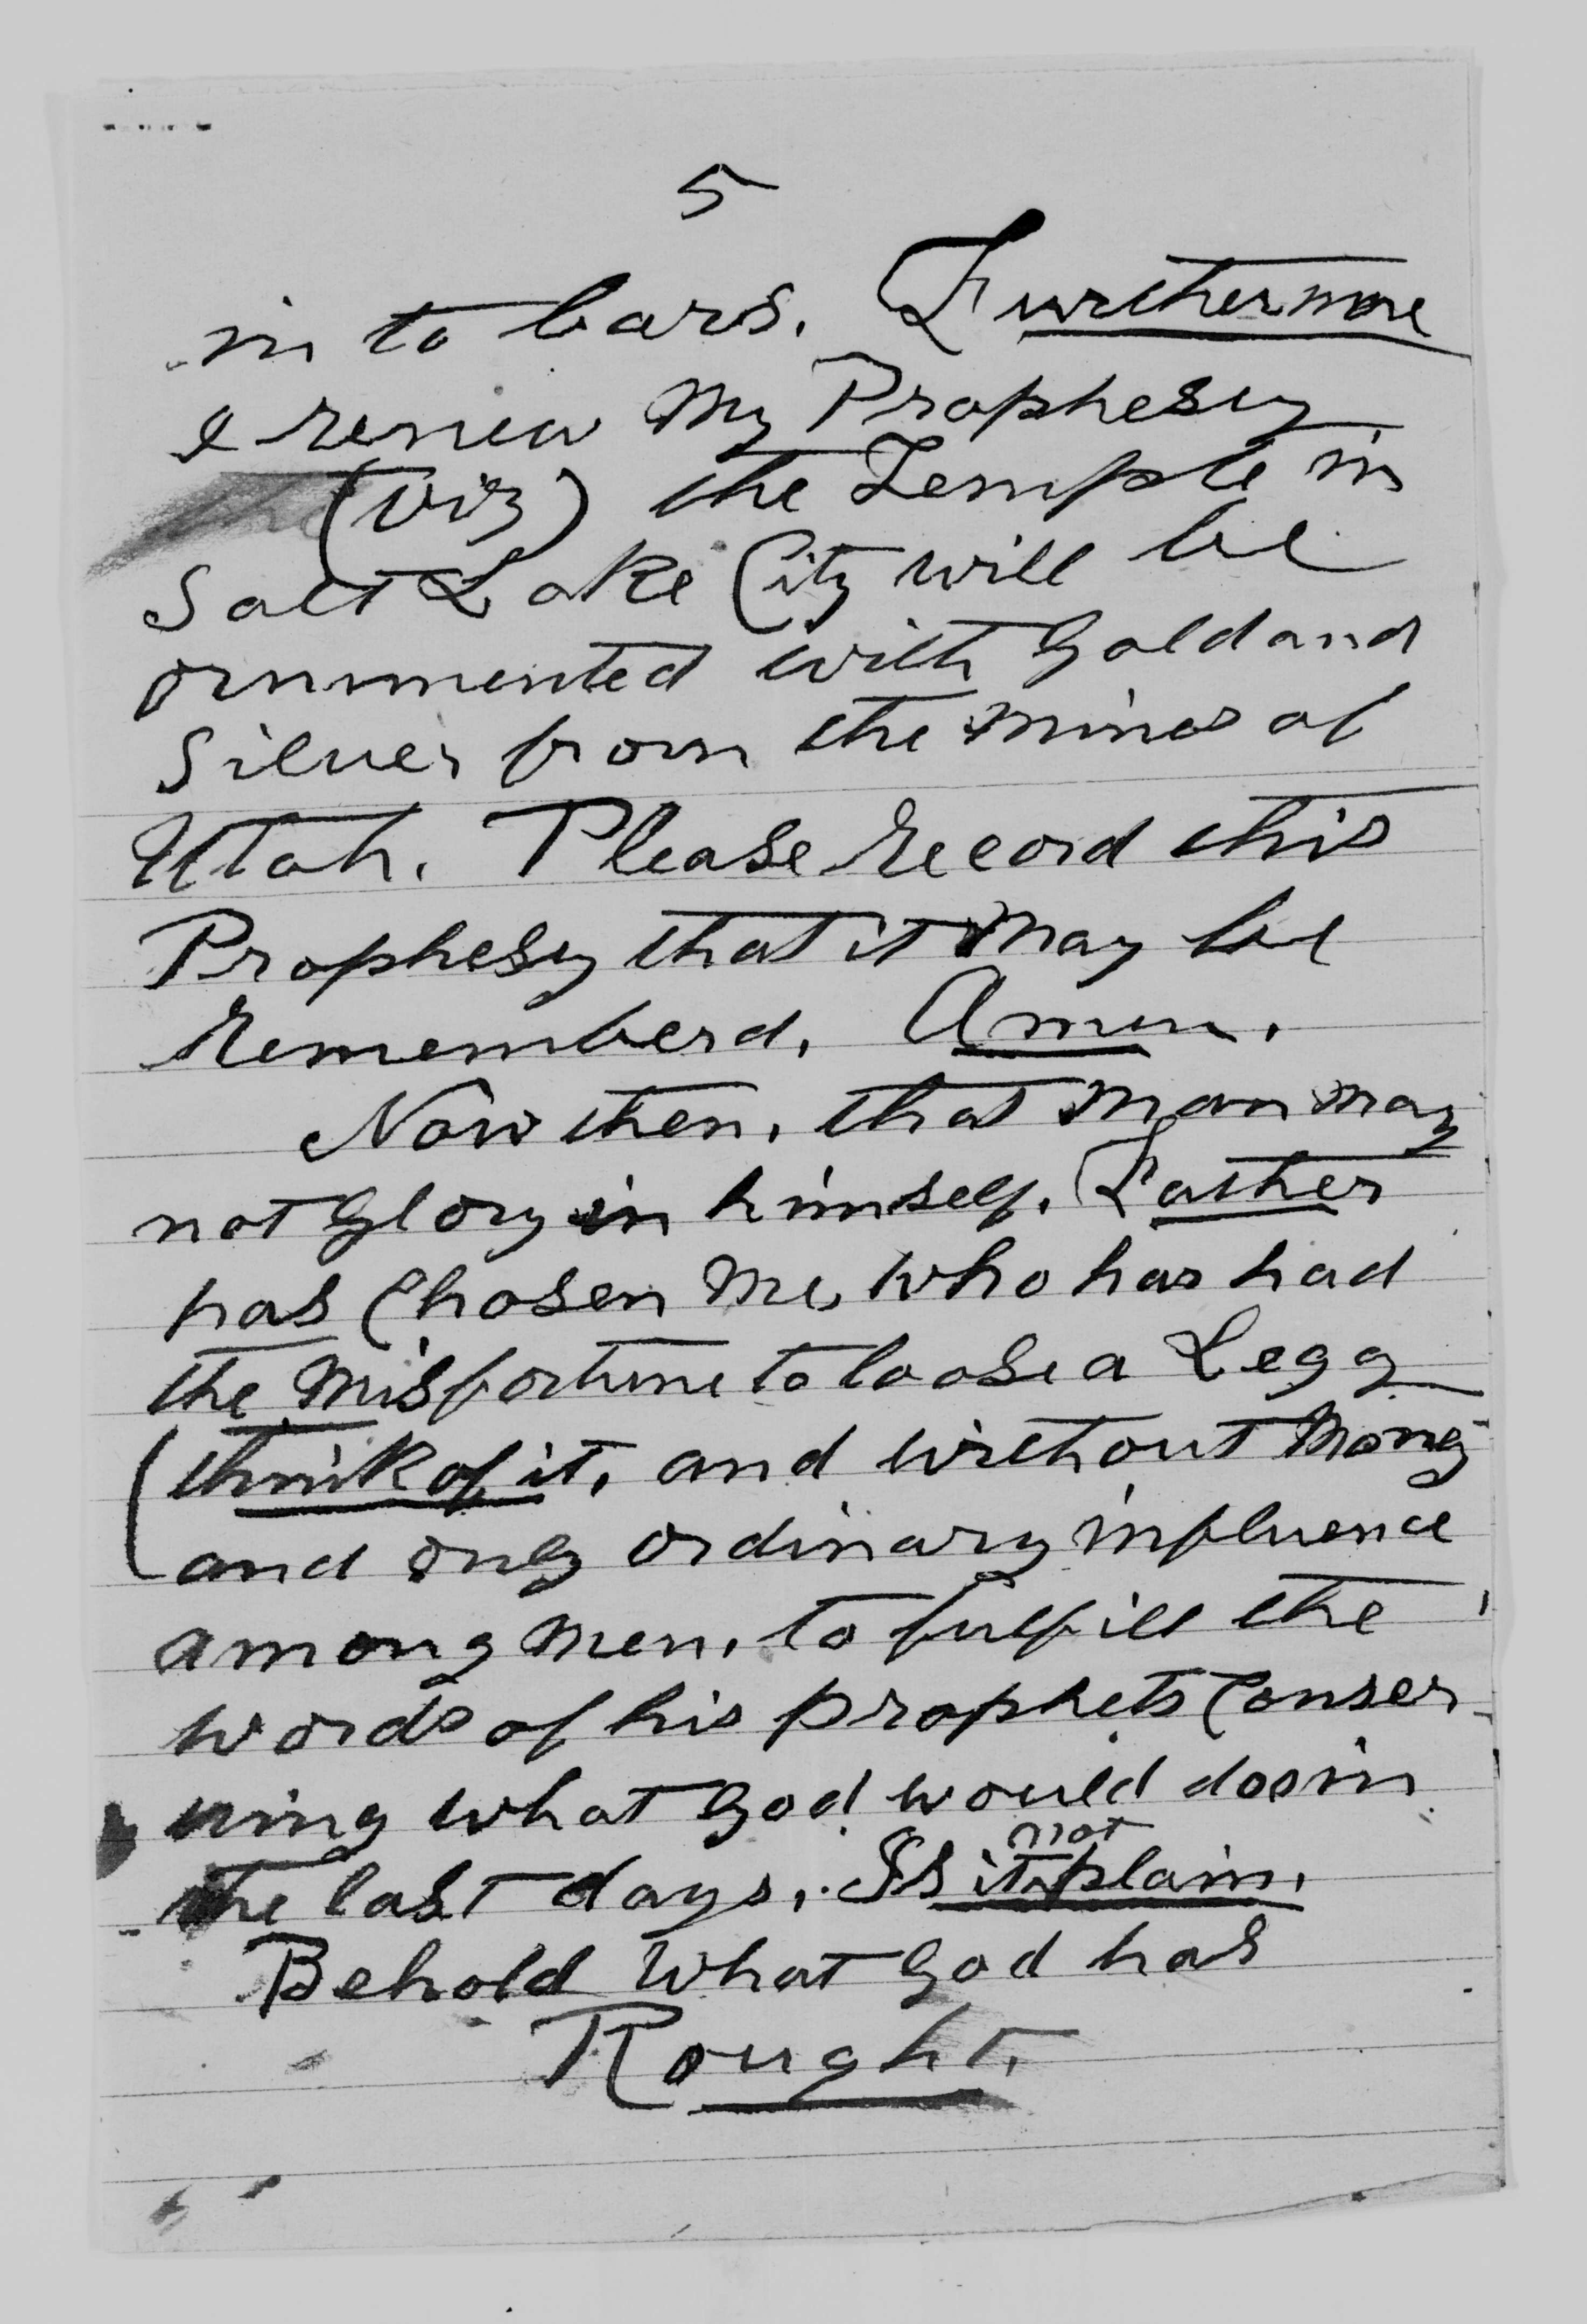 5
in to bars. Furthermore
I renew My Prophesy
(viz) the Temple in
Salt Lake City will be
ornmented with Gold and
Silver from the Mines of
Utah. Please Record this
Prophesy that it May be
Rememberd. Amen.
Now then, that Man may
not Glory in himself. Father
has Chosen Me, who has had
the Misfortune to loose a Legg
(think of it, and without Mony
and only ordinary influence
among Men, to fulfill the
words of his prophets Conser-
ning what God would do in
the last days. Is it not plain.
Behold What God has
Rought.